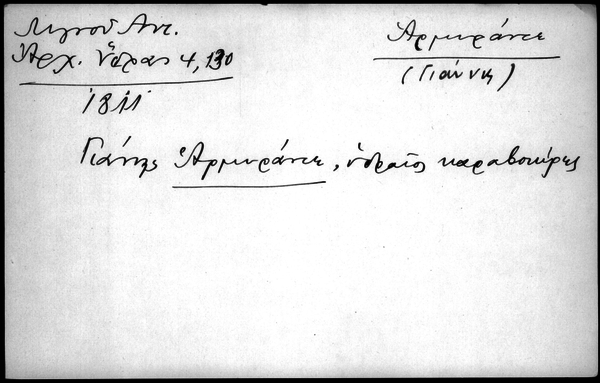 Λιγνού Αντ.
Ἀρχ. Ὕδρας 4, 130
1811
Ἀρμυράντε
(Γιάννης)
Γιάννης Ἀρμυράντε, ὑδραῖος καραβοκύρης